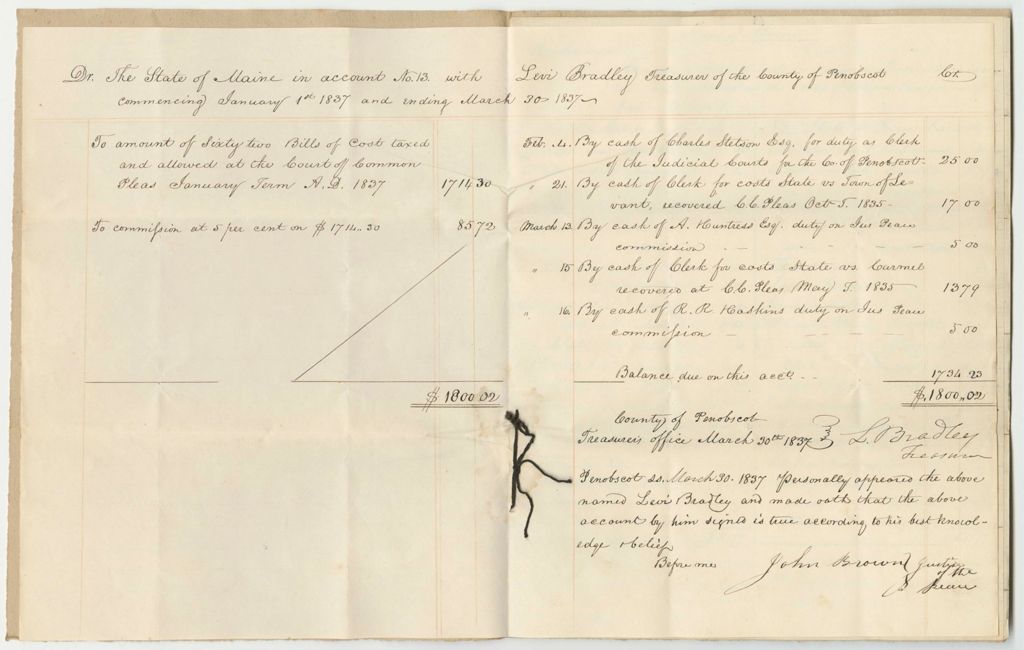 Dr. The State of Maine in account No. 13. with Levi Bradley Treasurer of the County of Penobscot Cr.
commencing January 1st 1837 and ending March 30 1837
To amount of Sixty two Bills of Cost taxed
and allowed at the Court of Common
Pleas January Term A.D. 1837 1714 30
To commission at 5 per cent on $1714..30 85 72
$1800 02
Feb. 4. By cash of Charles Stetson Esq. for duty as Clerk
of the Judicial Courts for the Co. of Penobscot 25 00
" 21. By cash of Clerk for costs State vs Town of Le-
vant, recovered C.C. Pleas Oct. T. 1835 - 17 00
March 13. By cash of A. Huntress Esq. duty on Jus Peace
commission - - - 5 00
" 15 By cash of Clerk for costs State vs. Carmel
recovered at C.C. Pleas May T. 1835 13 79
" 16. By cash of R. R. Haskins duty on Jus Peace
commission - - - - 5 00
Balance due on this acct. - - 1734 23
$1800..02
County of Penobscot
Treasurer's office March 30th 1837 L. Bradley
Treasurer
Penobscot ss. March 30. 1837 Personally appeared the above
named Levi Bradley and made oath that the above
account by him signed is true according to his best knowl-
edge & belief
Before me John Brown Justice
of the
Peace